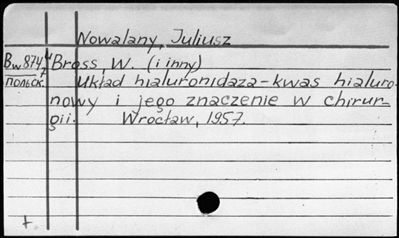 Nowalany, Juliusz
Bw 874/4 Bross, W. (i inny)
польск. Układ hialuronidaza-kwas hialuro-
nowy i jego znaczenie w chirur-
gii. Wrocław, 1957.
+